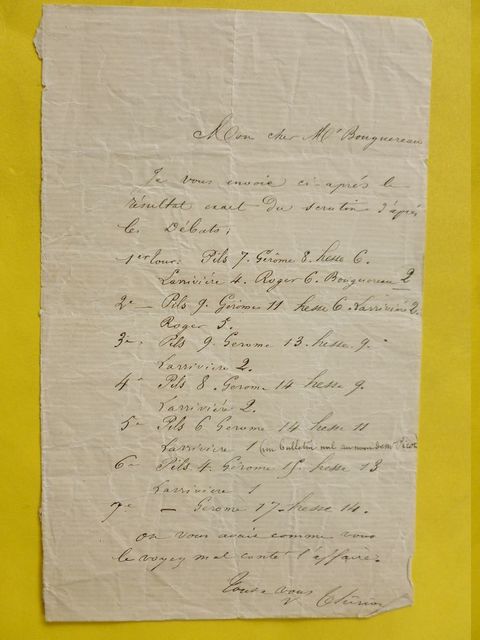 Mon cher Mr Bouguereau
Je vous envoie ci-après le
résultat exact du scrutin d'après
les Débats;
1er tour: Pils 7. Gérôme 8. hesse 6.
Larivière 4. Roger 6. Bouguereau 2
2e — Pils 9. Gérome 11 hesse 6. Larrivière 2.
Roger 5.
3e Pils 9. Gerome 13. hesse 9.
Larriviere 2.
4e Pils 8. Gerome 14 hesse 9.
Larriviére 2.
5e Pils 6 Gerome 14 hesse 11
Larriviere 1 (un bulletin nul au nom de M. Picot
6e Pils. 4. Gérome 15. hesse 13
Larriviere 1
7e — Gerome 17. hesse 14.
on vous avait comme vous
le voyez mal conté l'affaire.
Tout à vous